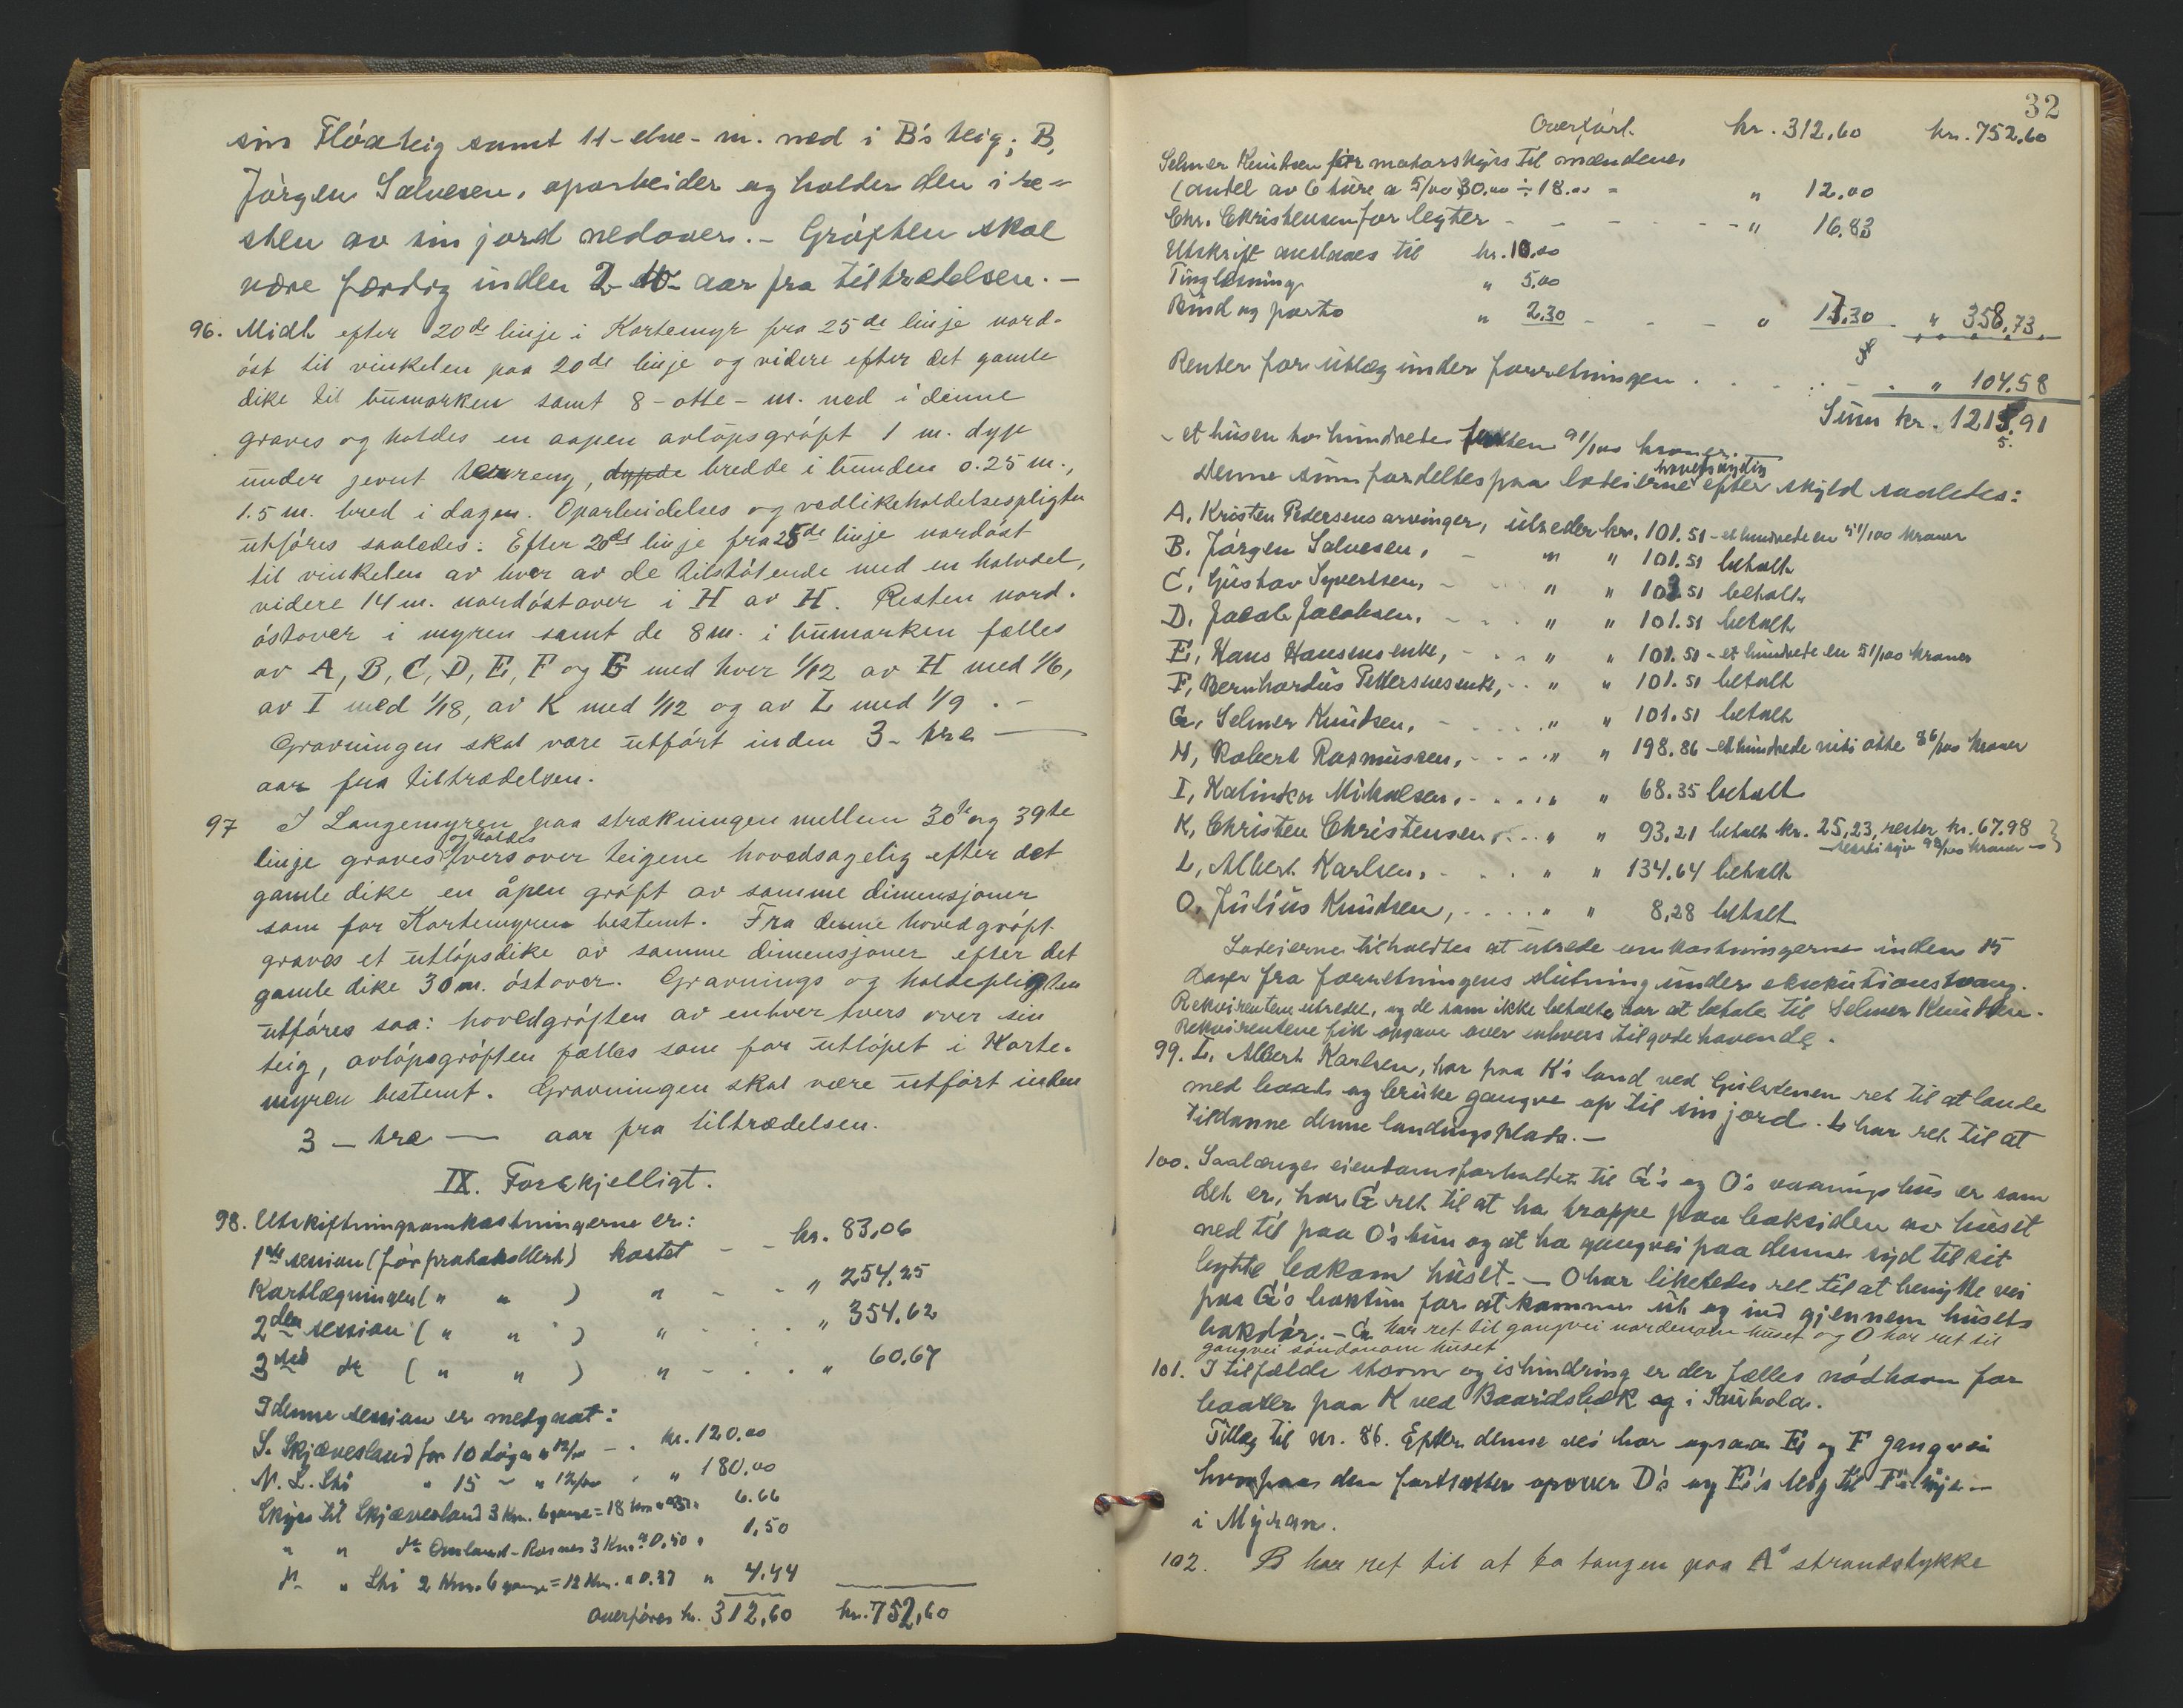 sin Flóateig samt 11-elve- m. ned i B's teig; B,
Jörgen Salvesen, oparbeider og holder den i re-
sten av sin jord nedover. - Gröften skal
være færdig inden 2 to aar fra tiltrædelsen. -
96. Midt efter 20de linje i Kortemyr fra 25de linje nord-
öst til vinkelen paa 20de linje og videre efter det gamle
dike til bumarken samt 8-otte- m. ned i denne
graves og holdes en aapen avlöpsgröft 1 m. dyp
under jevnt terræng, dypde bredde i bunden 0.25 m.,
1.5 m. bred i dagen. Oparbeidelses og vedlikeholdelsespligten
utföres saaledes: Efter 20de linje fra 25de linje nordöst
til vinkelen av hver av de tilstötende med en halvdel,
videre 14 m. nordöstover i H av H. Resten nord-
östover i myren samt de 8 m. i bumarken fælles
av A, B, C, D, E, F og G med hver 1/12 av H med 1/6,
av I med 1/18, av K med 1/12 og av L med 1/9. -
Gravningen skal være utfört inden 3 - tre -
aar fra tiltrædelsen.
97 I Langemyren paa strækningen mellem 30te og 39te
og holdes
linje graves tvers over teigene hovedsagelig efter det
gamle dike en åpen gröft av samme dimensjoner
som for Kortemyren bestemt. Fra denne hovedgröft
graves et utlöpsdike av samme dimensjoner efter det
gamle dike 30 m. östover. Gravnings og holdepligten
utföres saa: hovedgröften av enhver tvers over sin
teig, avlöpsgröften fælles som for utlöpet i Korte-
myren bestemt. Gravningen skal være utfört inden
3 - tre - aar fra tiltrædelsen.
IX. Forskjelligt.
98. Utskiftningsomkostningerne er:
1ste session (för protokollert) kostet - - kr. 83,06
Kartlægningen ( " " ) " - - " 254,25
2den session ( " " ) " - - " 354,62
3die do ( " " ) " - - " 60,67
I denne session er medgaat:
S. Skjævesland for 10 döger a 12/00 - - kr. 120.00
N. L. Shi " 15 - " 12/00 " " 180,00
Skyss til Skjævesland 3 Km. 6 gange = 18 Km a 0.37 " 6.66
" " do Omland-Rosnes 3 Km a 0,50 " 1,50
do " Shi 2 Km. 6 gange = 12 Km. a 0.37 " 4.44
overföres kr. 312,60 kr. 752,60
32
Overfört. kr. 312,60 kr. 752,60
Selmer Knudsen for motorskyss til mændene,
(andel av 6 ture a 5/00 30.00 ÷ 18.00 - " 12.00
Chr. Christensen for legter - - - - - " 16.83
Utskrift anslaaes til kr. 10.00
Tinglæsning " 5,00
Bud og porto " 2.30 - - - " 17.30 . " 358,73.
Renter for utlæg under forretningen . . . . - . " 104.58
Sum kr. 1215.91
5.
- et tusen to hundrede femten 91/100 kroner. -
hovedsagelig
Denne sum fordeltes paa lodeierne efter skyld saaledes:
A, Kristen Pedersens arvinger, utreder kr. 101.51 - et hundrede en 51/100 kroner
B, Jörgen Salvesen, - " " 101.51 betalt
C, Gustav Syvertsen, - " " 101.51 betalt
D, Jacob Jacobsen, - - . " " 101.51 betalt
E, Hans Hansens enke, - . . " " 101.51 - et hundrede en 51/100 kroner
F, Bernhardus Pettersens enke, . . " " 101.51 betalt
G, Selmer Knudsen, - . . . . " " 101.51 betalt
H, Robert Rasmussen, - . . . " " 198.86 - et hundrede niti otte 86/100 kroner
I, Kalinka Mikalsen, - . . . . " " 68.35 betalt
K, Christen Christensen, . . . " " 93.21 betalt kr. 25,23, rester kr. 67.98
- seksti syv 98/100 kroner - }
L, Albert Karlsen, - . . . " " 134.64 betalt
O, Julius Knudsen, . . . . " " 8,28 betalt
Lodeierne tilholdtes at utrede omkostningerne inden 15
dage fra forretningens slutning under eksekutionstvang.
Rekvirentene utredet, og de som ikke betalte har at betale til Selmer Knudsen.
Rekvirentene fik opgave over enhvers tilgodehavende.
99. L, Albert Karlsen, har paa K's land ved Gulstenen ret til at lande
med baads og bruke gangvei op til sin jord. L har ret til at
tildanne denne landingsplads. -
100. Saalænge eiendomsforholdet til G's og O's vaaningshus er som
det er, har G ret til at ha trappe paa baksiden av huset
ned til paa O's tun og at ha gangvei paa dennes syd til sit
bytte bakom huset. - O har likeledes ret til at benytte vei
paa G's baktun for at komme ut og ind gjennem husets
bakdör. - G har ret til gangvei nordenom huset og O har ret til
gangvei söndenom huset
101. I tilfælde storm og ishindring er der fælles nödhavn for
baater paa K ved Baaridsbæk og i Sauhola.
Tillæg til nr. 86. Efter denne vei har ogsaa E og F gangvei
hvorpaa den fortsætter opover D's og E's teig til F's linje -
i Myran.
102. B har ret til at ta tangen paa A's strandstykke